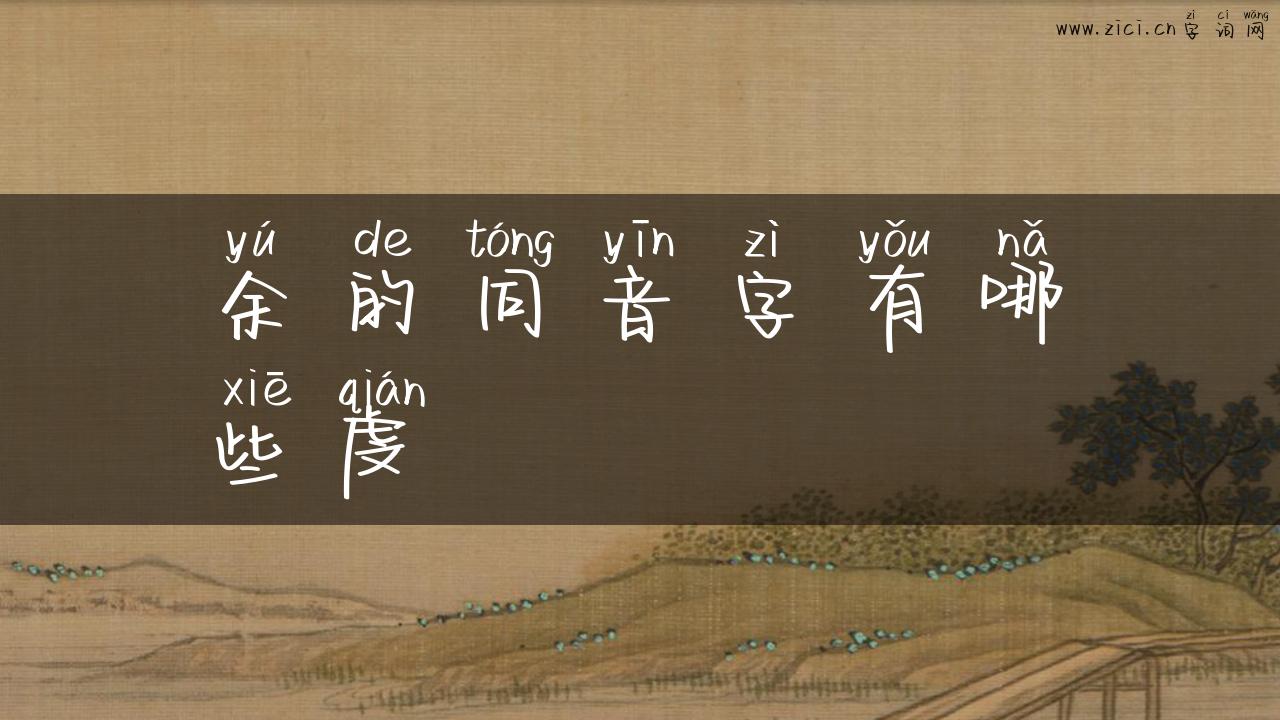 zì cí wǎng
www.zici.cn字词网
yú de tóng yīn zì yǒu nǎ
余的同音字有哪
xiē qián
些虔